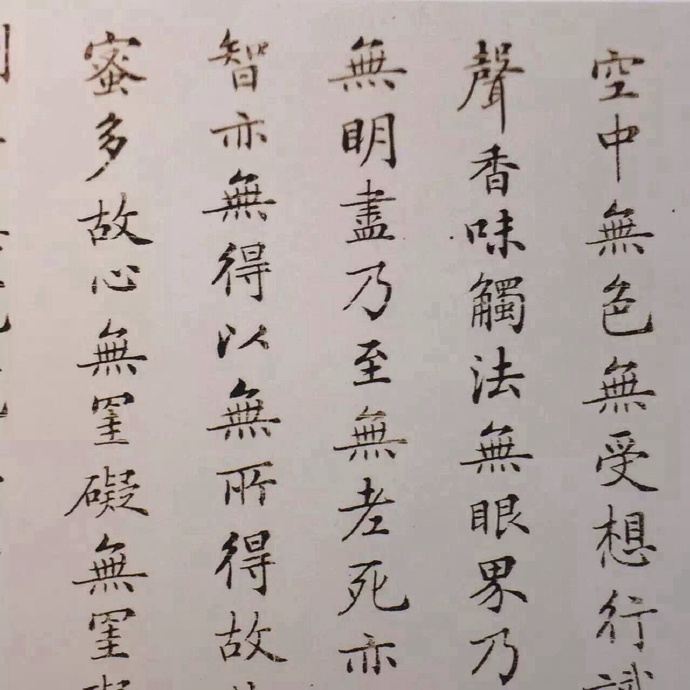 空中無色無受想行識
聲香味觸法無眼界乃
無明盡乃至無老死亦
智亦無得以無所得故
蜜多故心無罣礙無罣礙